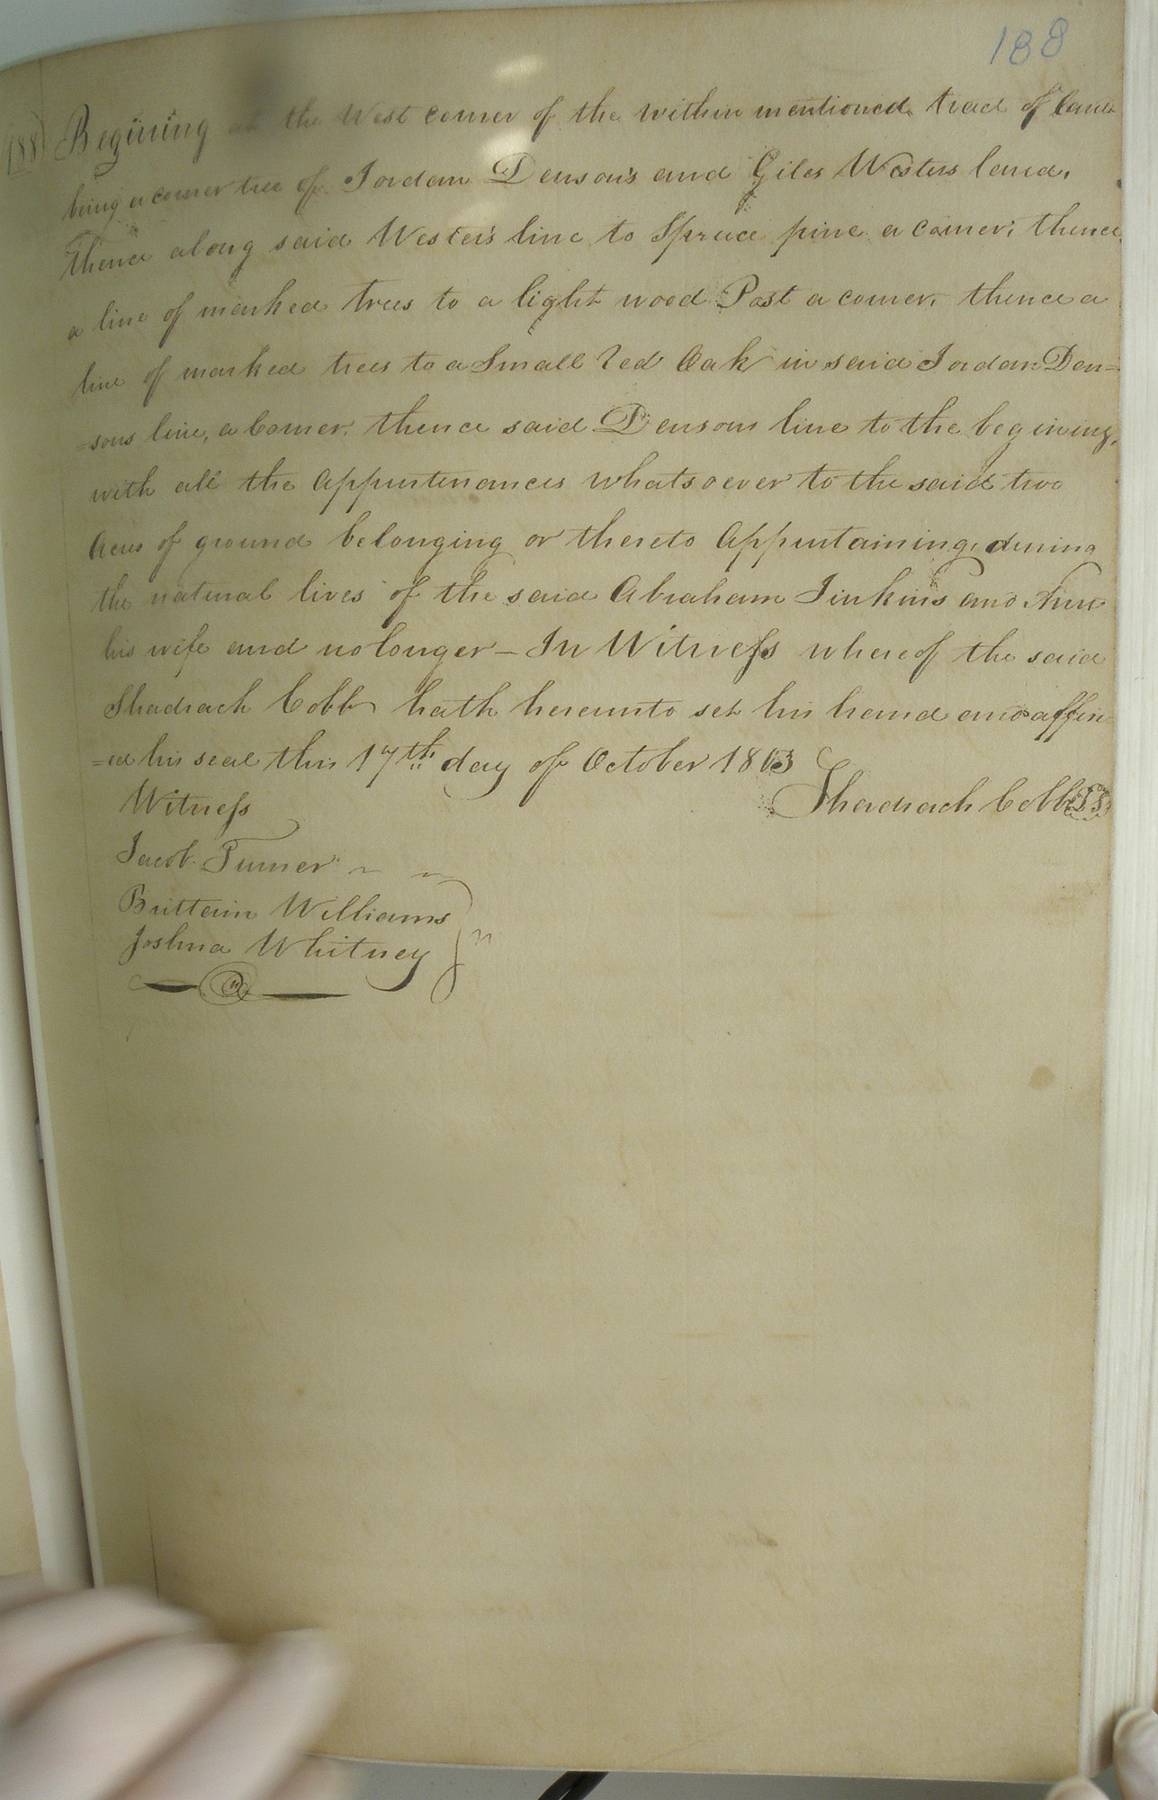 188
(188) Begining at the West corner of the within mentioned tract of land
being a corner tree of Jordan Denson's and Giles Westers land,
Thence along said Wester's line to Spruce pine a corner; thence
a line of marked trees to a light wood Post a corner, thence a
line of marked trees to a Small Red Oak in said Jordan Den=
=sons line, a Corner, thence said Densons line to the begining,
with all the appurtenances whatsoever to the said two
Acres of ground belonging or thereto appurtaining, during
the natural lives of the said Abraham Jinkins and Ann
his wife and no longer — In Witness whereof the said
Shadrach Cobb hath hereunto set his hand and affix
=ed his seal this 17th day of October 1803
Shadrach Cobb
Witness
Jacob Turner
Brittain Williams
Joshua Whitney